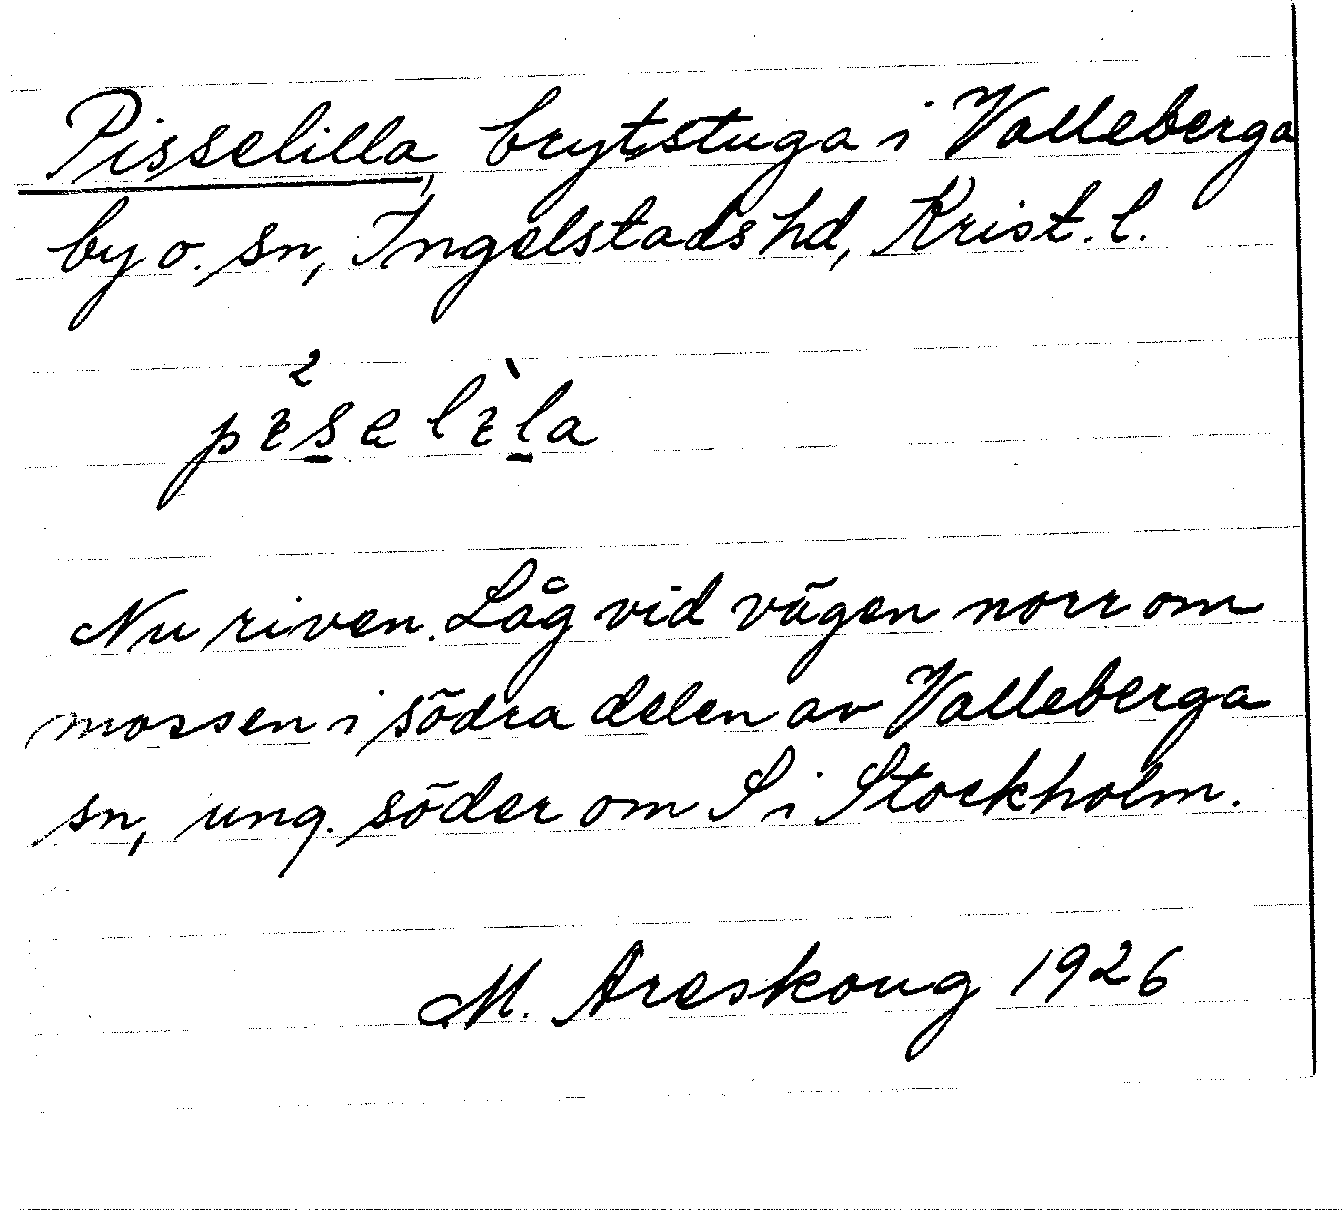 Pisselilla, brytstuga i Valleberga
by o. sn, Ingelstads hd, Krist. l.
Nu riven. Låg vid vägen norr om
mossen i södra delen av Valleberga
sn, ung. söder om S i Stockholm.
M. Areskoug 1926